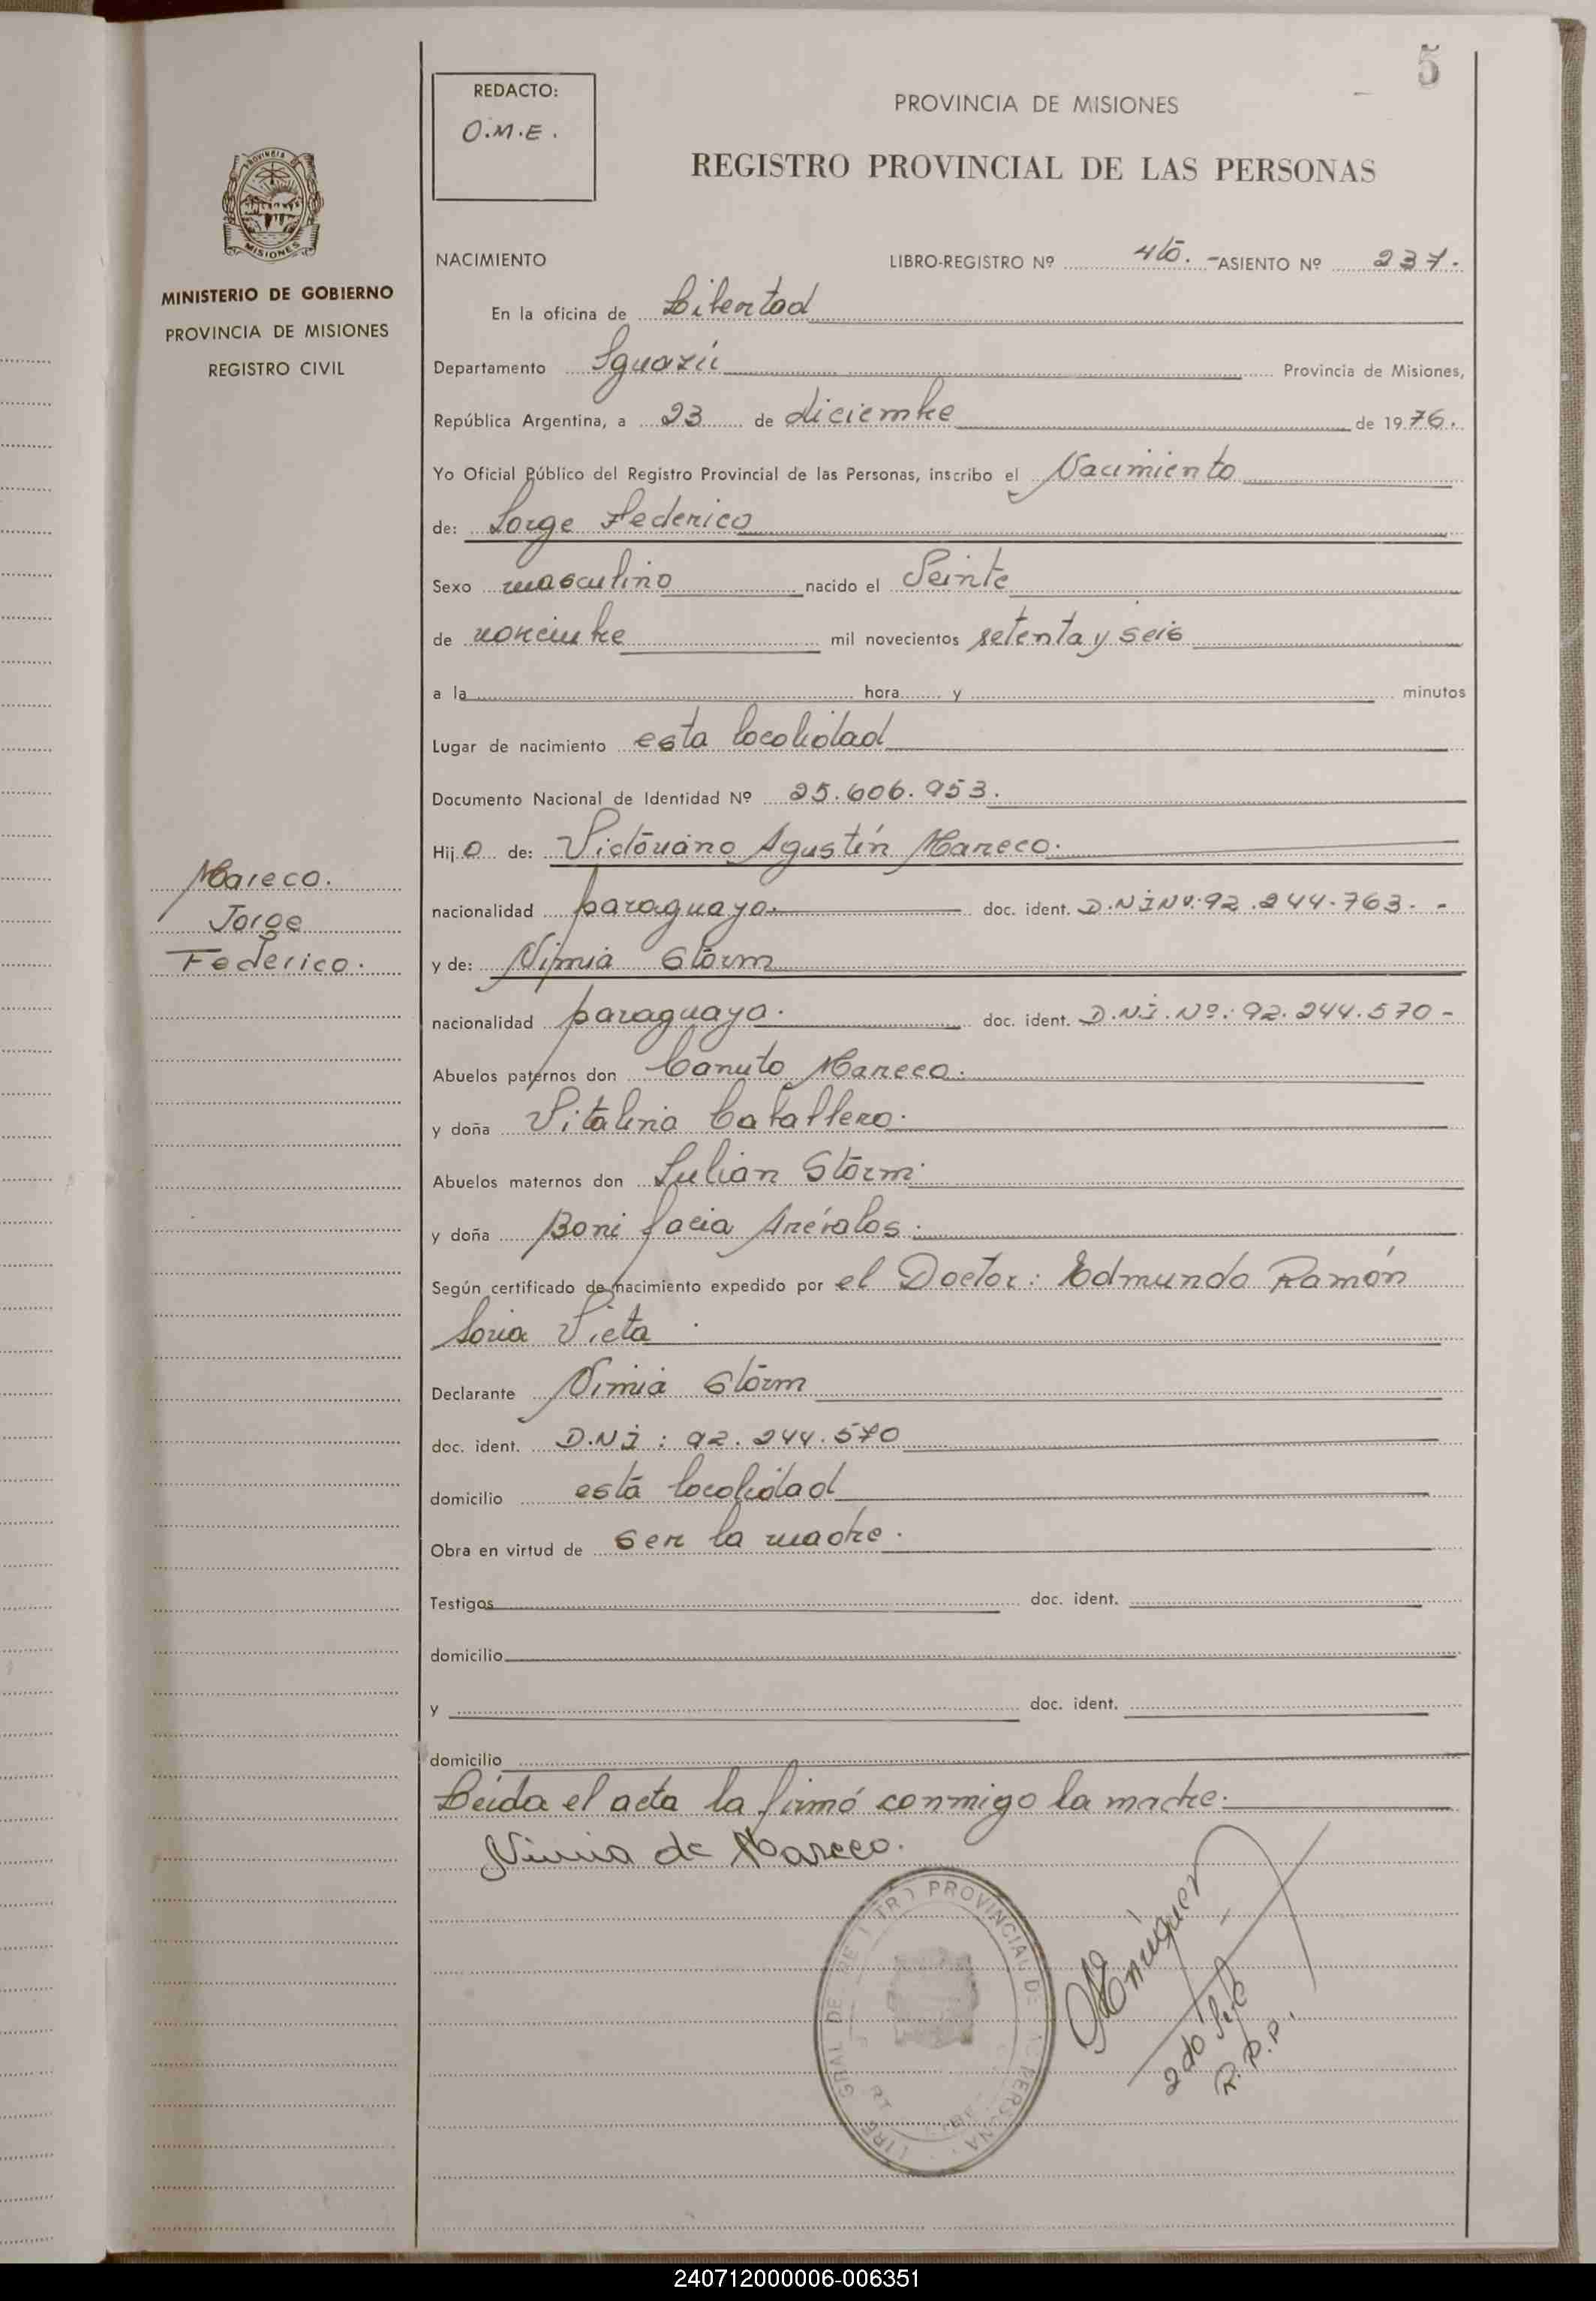 5
REDACTO:
O.M.E.
PROVINCIA DE MISIONES
REGISTRO PROVINCIAL DE LAS PERSONAS
PROVINCIA
MISIONES
MINISTERIO DE GOBIERNO
PROVINCIA DE MISIONES
REGISTRO CIVIL
NACIMIENTO LIBRO-REGISTRO Nº 4to. - ASIENTO Nº 237.
En la oficina de Libertad
Departamento Iguazú Provincia de Misiones,
República Argentina, a 23 de diciembre de 1976.
Yo Oficial Público del Registro Provincial de las Personas, inscribo el Nacimiento
de: Jorge Federico
Sexo masculino nacido el Veinte
de noviembre mil novecientos setenta y seis
a la hora y minutos
Lugar de nacimiento esta localidad
Documento Nacional de Identidad Nº 25.606.953.
Hijo de: Victoriano Agustín Mareco.
Mareco.
Jorge
Federico.
nacionalidad paraguaya. doc. ident. D.N.I Nº: 92.244.763. -
y de: Nimia Storm
nacionalidad paraguaya. doc. ident. D.N.I. Nº: 92.244.570 -
Abuelos paternos don Canuto Mareco.
y doña Vitalina Caballero.
Abuelos maternos don Julian Storm.
y doña Bonifacia Arévalos.
Según certificado de nacimiento expedido por el Doctor: Edmundo Ramón
Soria Vieta
Declarante Nimia Storm
doc. ident. D.N.I : 92.244.570
domicilio esta localidad
Obra en virtud de ser la madre.
Testigos doc. ident.
domicilio
y doc. ident.
domicilio
Leída el acta la firmó conmigo la madre.
Nimia de Mareco.
PROVINCIAL DE
2do
R.P.P.
240712000006-006351